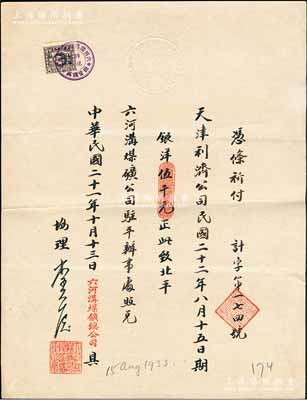 憑條祈付 計字第一七四號
天津利濟公司民國二十二年八月十五日期
銀洋伍千元正此致北平
六河溝煤鑛公司駐平辦事處照兌
中華民國二十一年十月十三日
六河溝煤鑛總公司 具
協理
15 Aug 1933
174